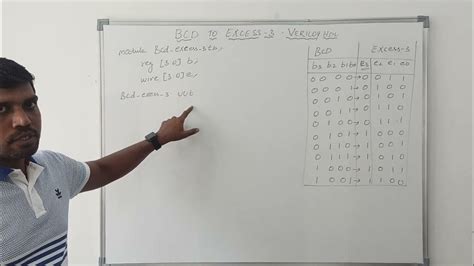 BCD TO EXCESS-3 - VERILOG HDL
module Bcd_excess_3tb;
reg [3:0] b;
wire [3:0] e;
Bcd_excess_3 uut
BCD EXCESS-3
b3 b2 b1 b0 e3 e2 e1 e0
0 0 0 0 → 0 0 1 1
0 0 0 1 → 0 1 0 0
0 0 1 0 → 0 1 0 1
0 0 1 1 → 0 1 1 0
0 1 0 0 → 0 1 1 1
0 1 0 1 → 1 0 0 0
0 1 1 0 → 1 0 0 1
0 1 1 1 → 1 0 1 0
1 0 0 0 → 1 0 1 1
1 0 0 1 → 1 1 0 0